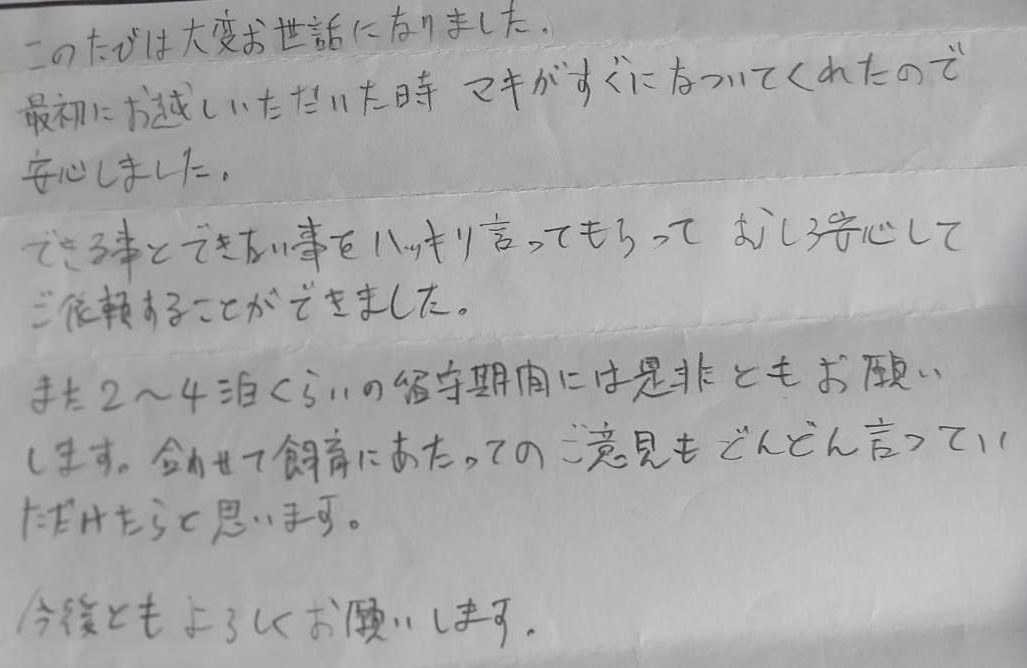 このたびは大変お世話になりました。
最初にお越しいただいた時 マキがすぐになついてくれたので
安心しました。
できる事とできない事をハッキリ言ってもらって むしろ安心して
ご依頼することができました。
また2〜4泊くらいの留守期間には是非ともお願い
します。合わせて飼育にあたってのご意見もどんどん言ってい
ただけたらと思います。
今後ともよろしくお願いします。